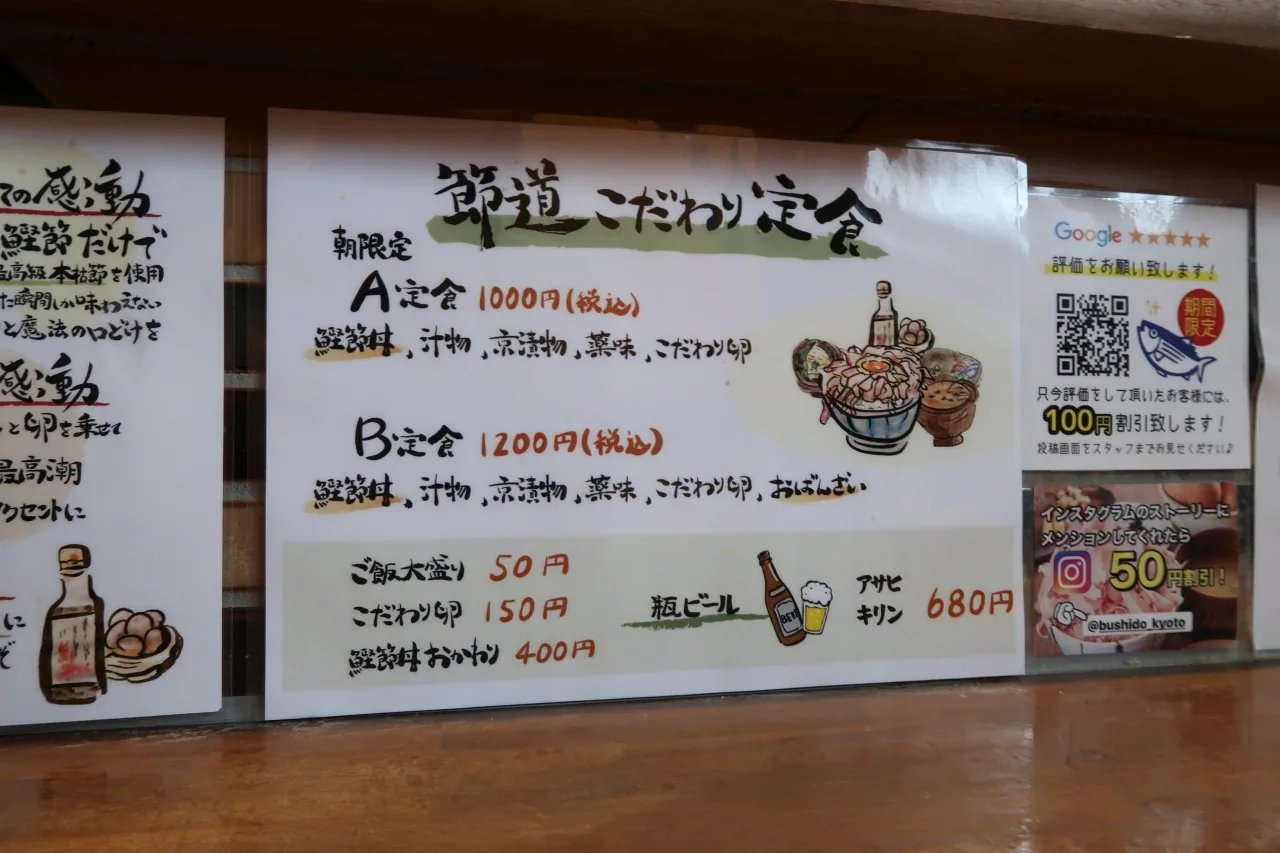 ての感動
鰹節だけで
最高級本枯節を使用
た瞬間しか味わえない
と魔法の口どけを
感動
っと卵を乗せて
最高潮
アクセントに
に
ぞ
節道 こだわり定食
朝限定
A定食 1000円(税込)
鰹節丼、汁物、京漬物、薬味、こだわり卵
B定食 1200円(税込)
鰹節丼、汁物、京漬物、薬味、こだわり卵、おばんざい
ご飯大盛り 50円
こだわり卵 150円
鰹節丼おかわり 400円
瓶ビール
BEER
アサヒ
キリン
680円
Google ★★★★★
評価をお願い致します!
期間
限定
只今評価をして頂いたお客様には、
100円割引致します!
投稿画面をスタッフまでお見せください♪
インスタグラムのストーリーに
メンションしてくれたら
50円割引!
@bushido_kyoto